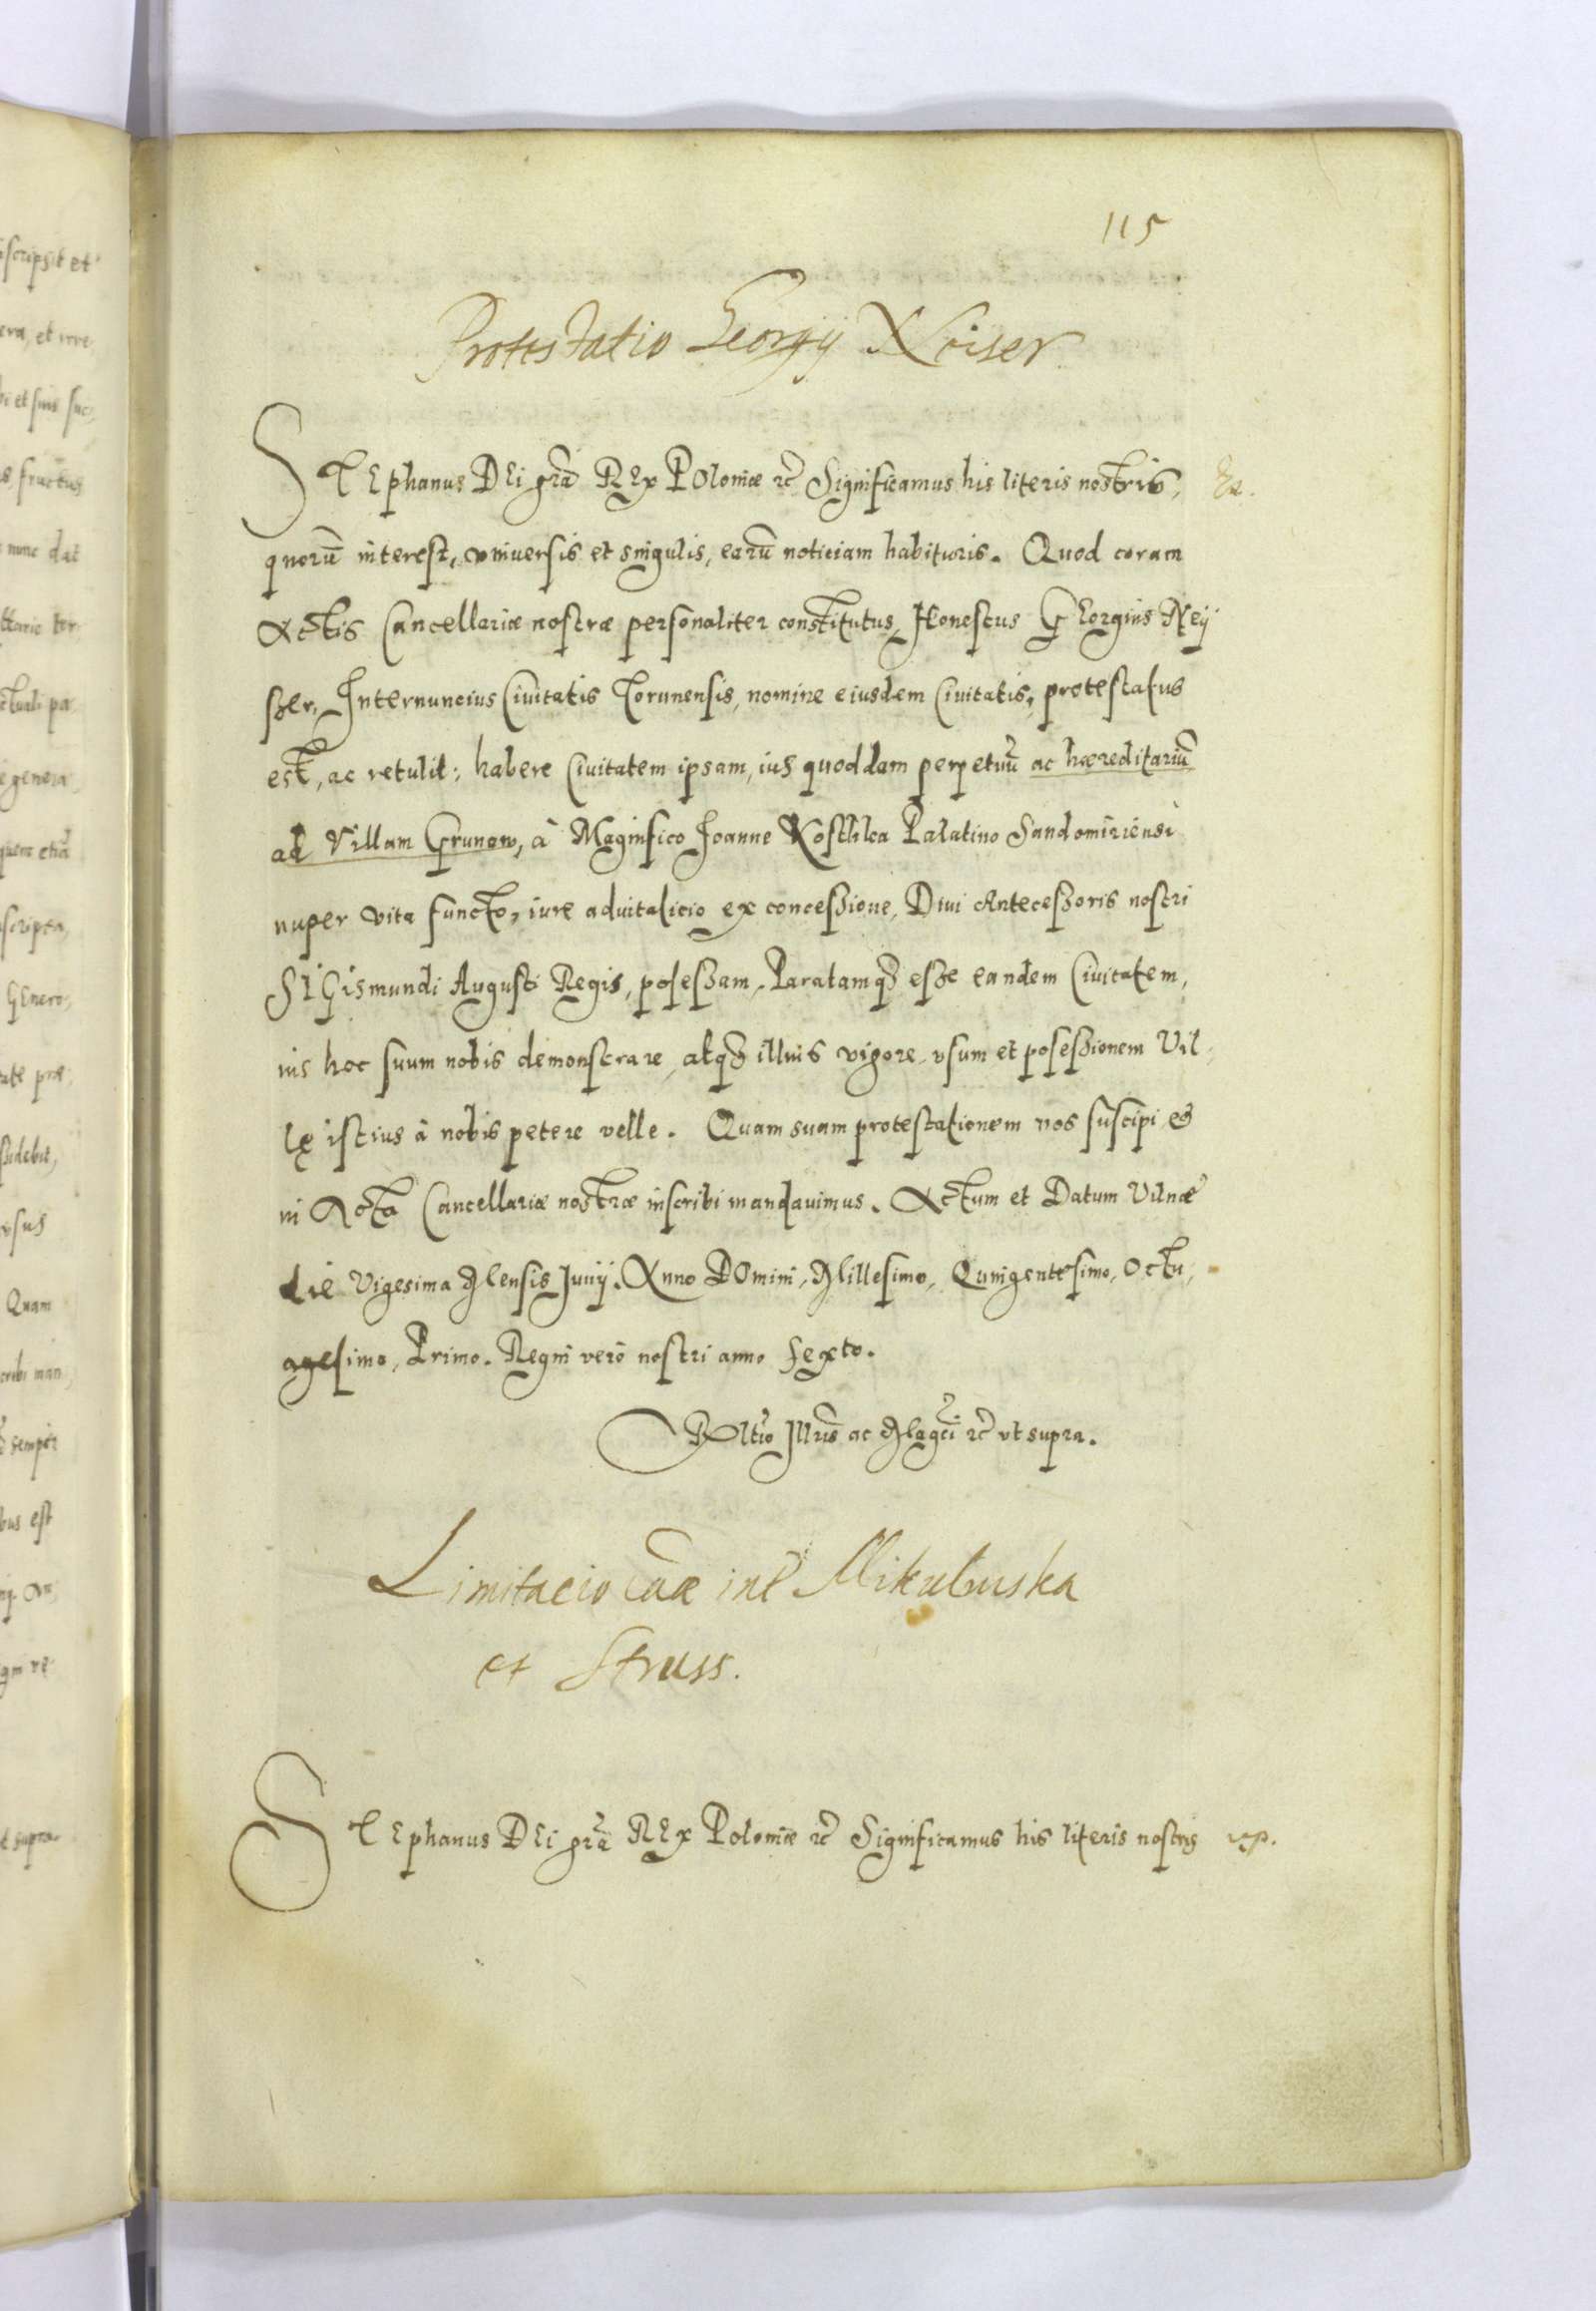 115
Protestatio Georgij Neiser
STEphanus DEi gra REx POloniæ rc Significamus his literis nostris,
quorū interest, vniuersis et singulis, earū noticiam habituris. Quod coram
Actis Cancellariæ nostræ personaliter constitutus, Honestus GEorgius Neÿ
sser, Internuncius Ciuitatis Torunensis, nomine eiusdem Ciuitatis, protestatus
est, ac retulit: habere Ciuitatem ipsam, ius quoddam perpetuū ac hæreditariū
ad Villam Grunow, à Magnifico Joanne Kosthka Palatino Sandomiriensi
nuper vita functo, iure aduitalicio ex concessione, Diui Antecessoris nostri
SIGismundi Augusti Regis, possessam, Paratamq3 esse eandem Ciuitatem,
ius hoc suum nobis demonstrare, atq3 illius vigore, vsum et possessionem Vil,
lę istius à nobis petere velle. Quam suam protestationem nos suscipi et
in Acta Cancellariæ nostræ inscribi mandauimus. Actum et Datum Vilnæ
die Vigesima Mensis Junij. Anno DOmini, Millesimo, Quingentesimo, Octu,
agesimo, Primo. Regni verò nostri anno sexto.
Rltio Jllris ac Magci rc vt supra.
Limitacio cāæ int Mikulinska
et Struss.
STEphanus DEi gra REx Poloniæ rc Significamus his literis nostris